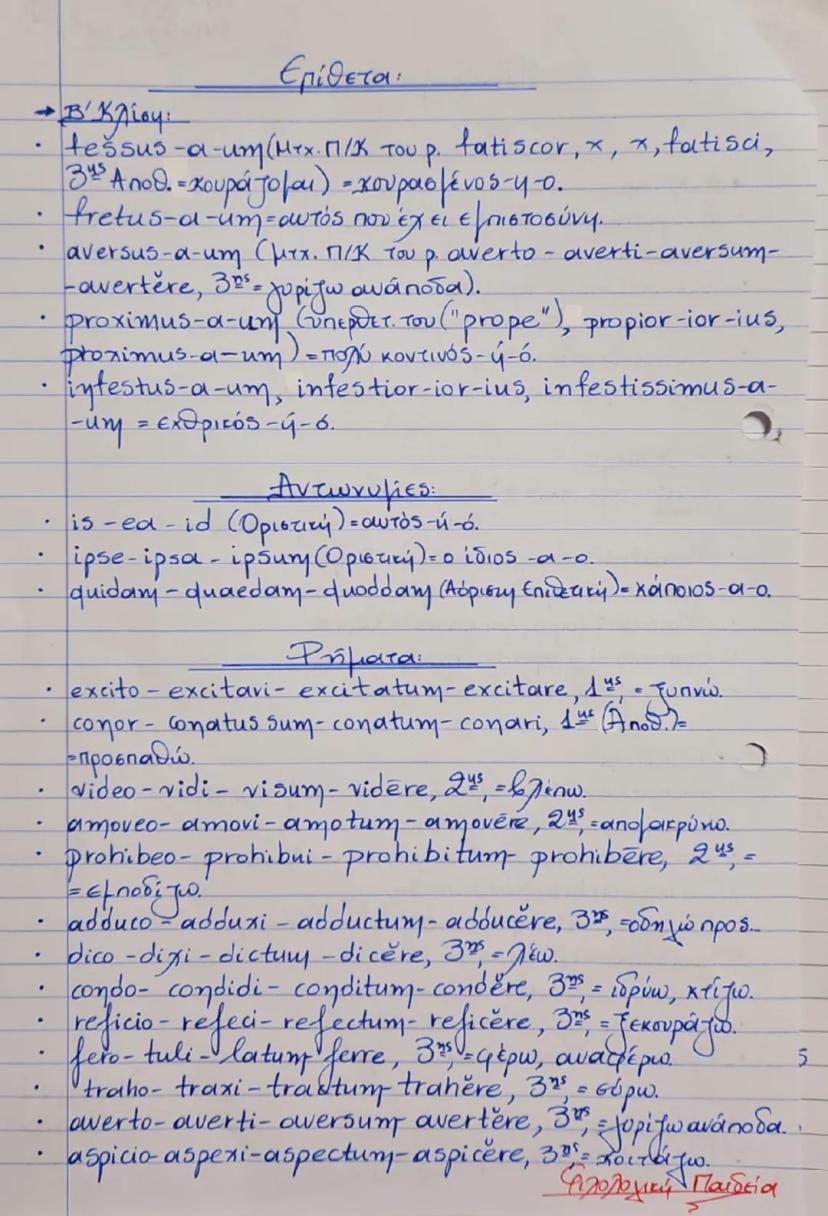 Επίθετα:
→ Β' Κλίση:
· fessus-a-um (Μτχ. Π/Κ του ρ. fatiscor, x, x, fatisci,
3ης Αποθ. = κουράζομαι) = κουρασμένος-η-ο.
· fretus-a-um = αυτός που έχει εμπιστοσύνη.
· aversus-a-um (μτχ. Π/Κ του ρ. averto - averti-aversum-
-avertĕre, 3ης = γυρίζω ανάποδα).
· proximus-a-um (υπερθετ. του ("prope"), propior-ior-ius,
proximus-a-um) = πολύ κοντινός-ή-ό.
· infestus-a-um, infestior-ior-ius, infestissimus-a-
-um = εχθρικός-ή-ό.
Αντωνυμίες:
· is - ea - id (Οριστική) = αυτός-ή-ό.
· ipse-ipsa - ipsum (Οριστική) = ο ίδιος -α-ο.
· quidam - quaedam - quoddam (Αόριστη Επιθετική) = κάποιος-α-ο.
Ρήματα:
· excito - excitavi - excitatum - excitare, 1ης, = ξυπνώ.
· conor - conatus sum - conatum - conari, 1ης (Αποθ.) =
=προσπαθώ.
· video - vidi - visum - vidēre, 2ης, = βλέπω.
· amoveo - amovi - amotum - amovēre, 2ης, = απομακρύνω.
· prohibeo - prohibui - prohibitum - prohibēre, 2ης, =
= εμποδίζω.
· adduco - adduxi - adductum - adducĕre, 3ης, = οδηγώ προς...
· dico - dixi - dictum - dicĕre, 3ης, = λέω.
· condo - condidi - conditum - condĕre, 3ης, = ιδρύω, κτίζω.
· reficio - refeci - refectum - reficĕre, 3ης, = ξεκουράζω.
· fero - tuli - latum ferre, 3ης, = φέρω, αναφέρω.
· traho - traxi - tractum - trahĕre, 3ης, = σύρω.
· averto - averti - aversum - avertĕre, 3ης, = γυρίζω ανάποδα.
· aspicio - aspexi - aspectum - aspicĕre, 3ης, = κοιτάζω.
Φιλολογική Παιδεία